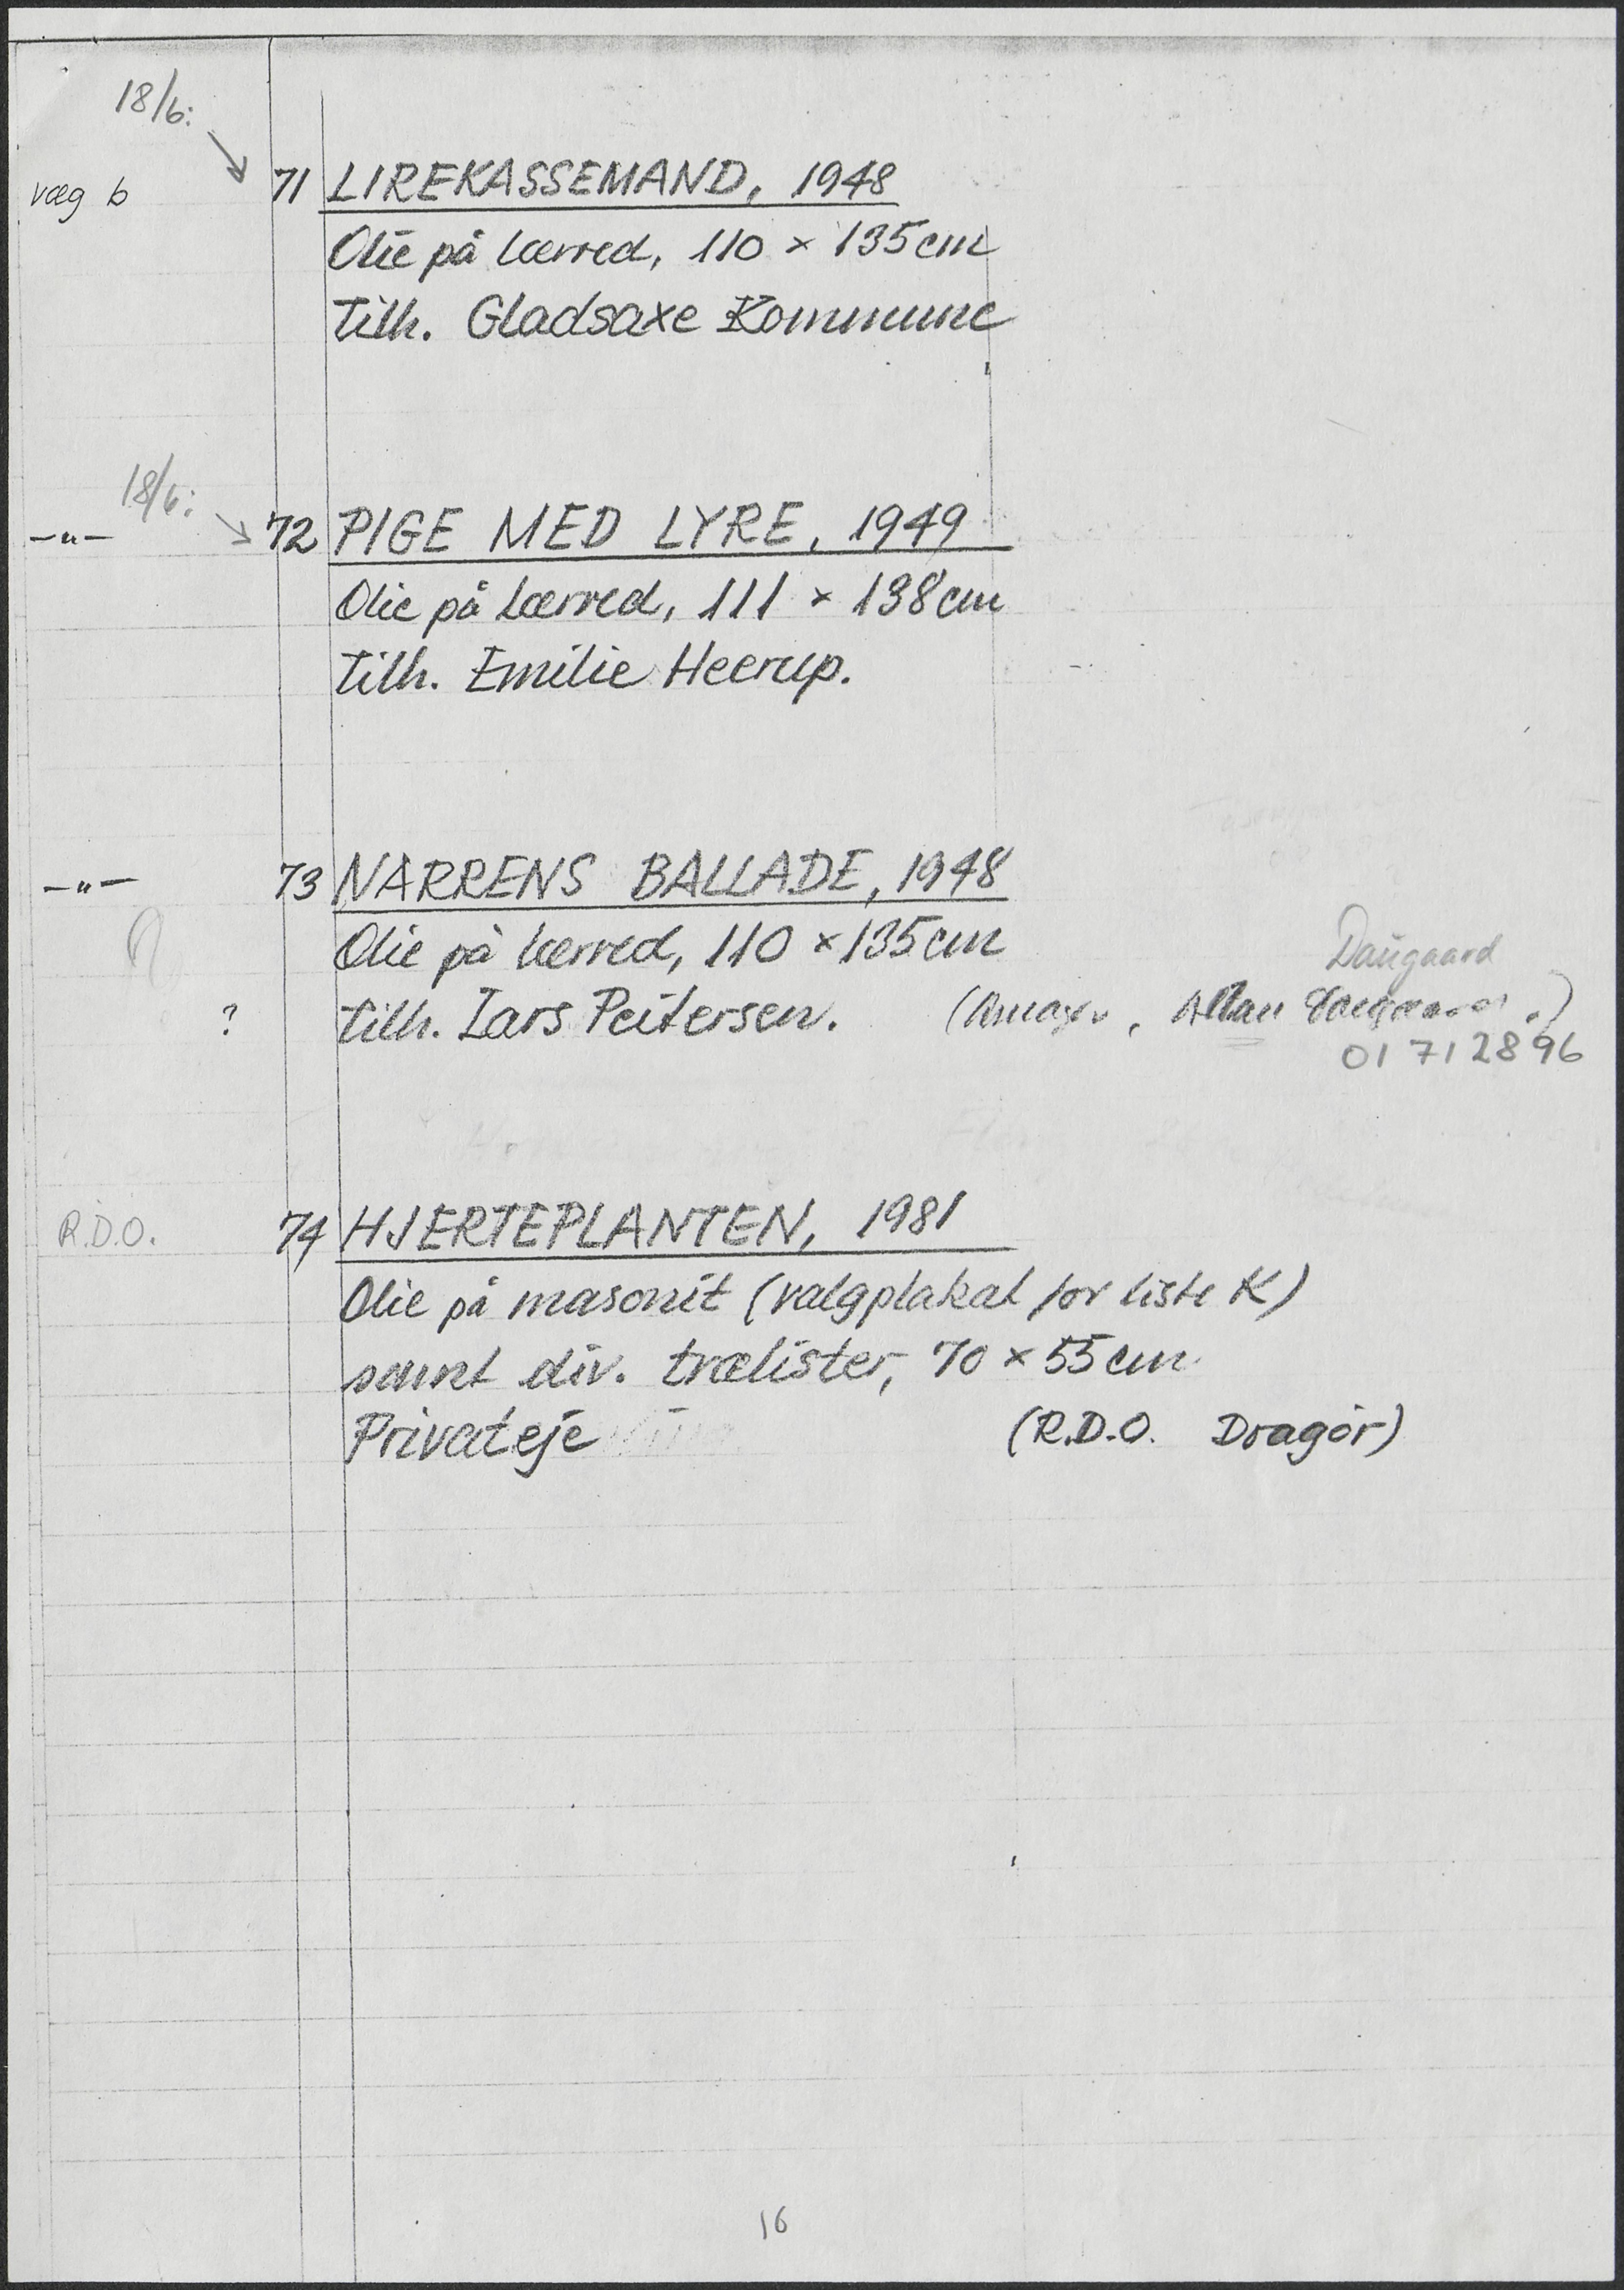 18/6:
væg b 71 LIREKASSEMAND, 1948
Olie på lærred, 110 × 135 cm
Tilh. Gladsaxe Kommune
18/6:
-"- 72 PIGE MED LYRE, 1949
Olie på lærred, 111 × 138 cm
Tilh. Emilie Heerup.
-"- 73 NARRENS BALLADE, 1948
Olie på lærred, 110 × 135 cm
Daugaard
? Tilh. Lars Peitersen. (Amager, Allan Daugaard.)
01 71 28 96
R.D.O. 74 HJERTEPLANTEN, 1981
Olie på masonit (valgplakat for liste K)
samt div. trælister, 70 × 55 cm
Privateje (R.D.O. Dragør)
16